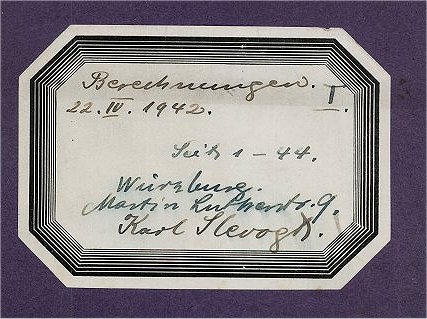 Berechnungen. I.
22. IV. 1942.
Seite 1 – 44.
Würzburg.
Martin Lutherstr. 9.
Karl Slevogt.